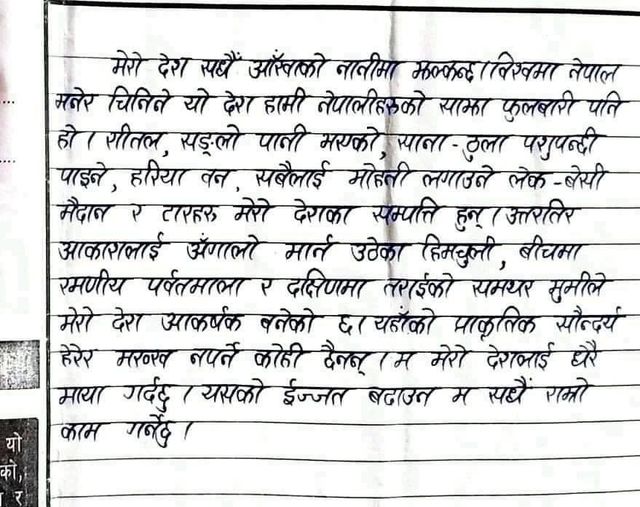 मेरो देश सधैँ आँखाको नानीमा झल्कन्छ । विश्वमा नेपाल
भनेर चिनिने यो देश हामी नेपालीहरुको साझा फुलबारी पनि
हो । शीतल, सङ्लो पानी भएको, साना-ठुला पशुपन्छी
पाइने, हरिया वन, सबैलाई मोहनी लगाउने लेक-बेसी
मैदान र टारहरु मेरो देशका सम्पत्ति हुन् । उत्तरतिर
आकाशलाई अँगालो मार्न उठेका हिमचुली, बीचमा
रमणीय पर्वतमाला र दक्षिणमा तराईको समथर भुमीले
मेरो देश आकर्षक बनेको छ । यहाँको प्राकृतिक सौन्दर्य
हेरेर मख्ख नपर्ने कोही छैनन् । म मेरो देशलाई धेरै
माया गर्दछु । यसको ईज्जत बढाउन म सधैँ राम्रो
काम गर्नेछु ।
यो
को,
र